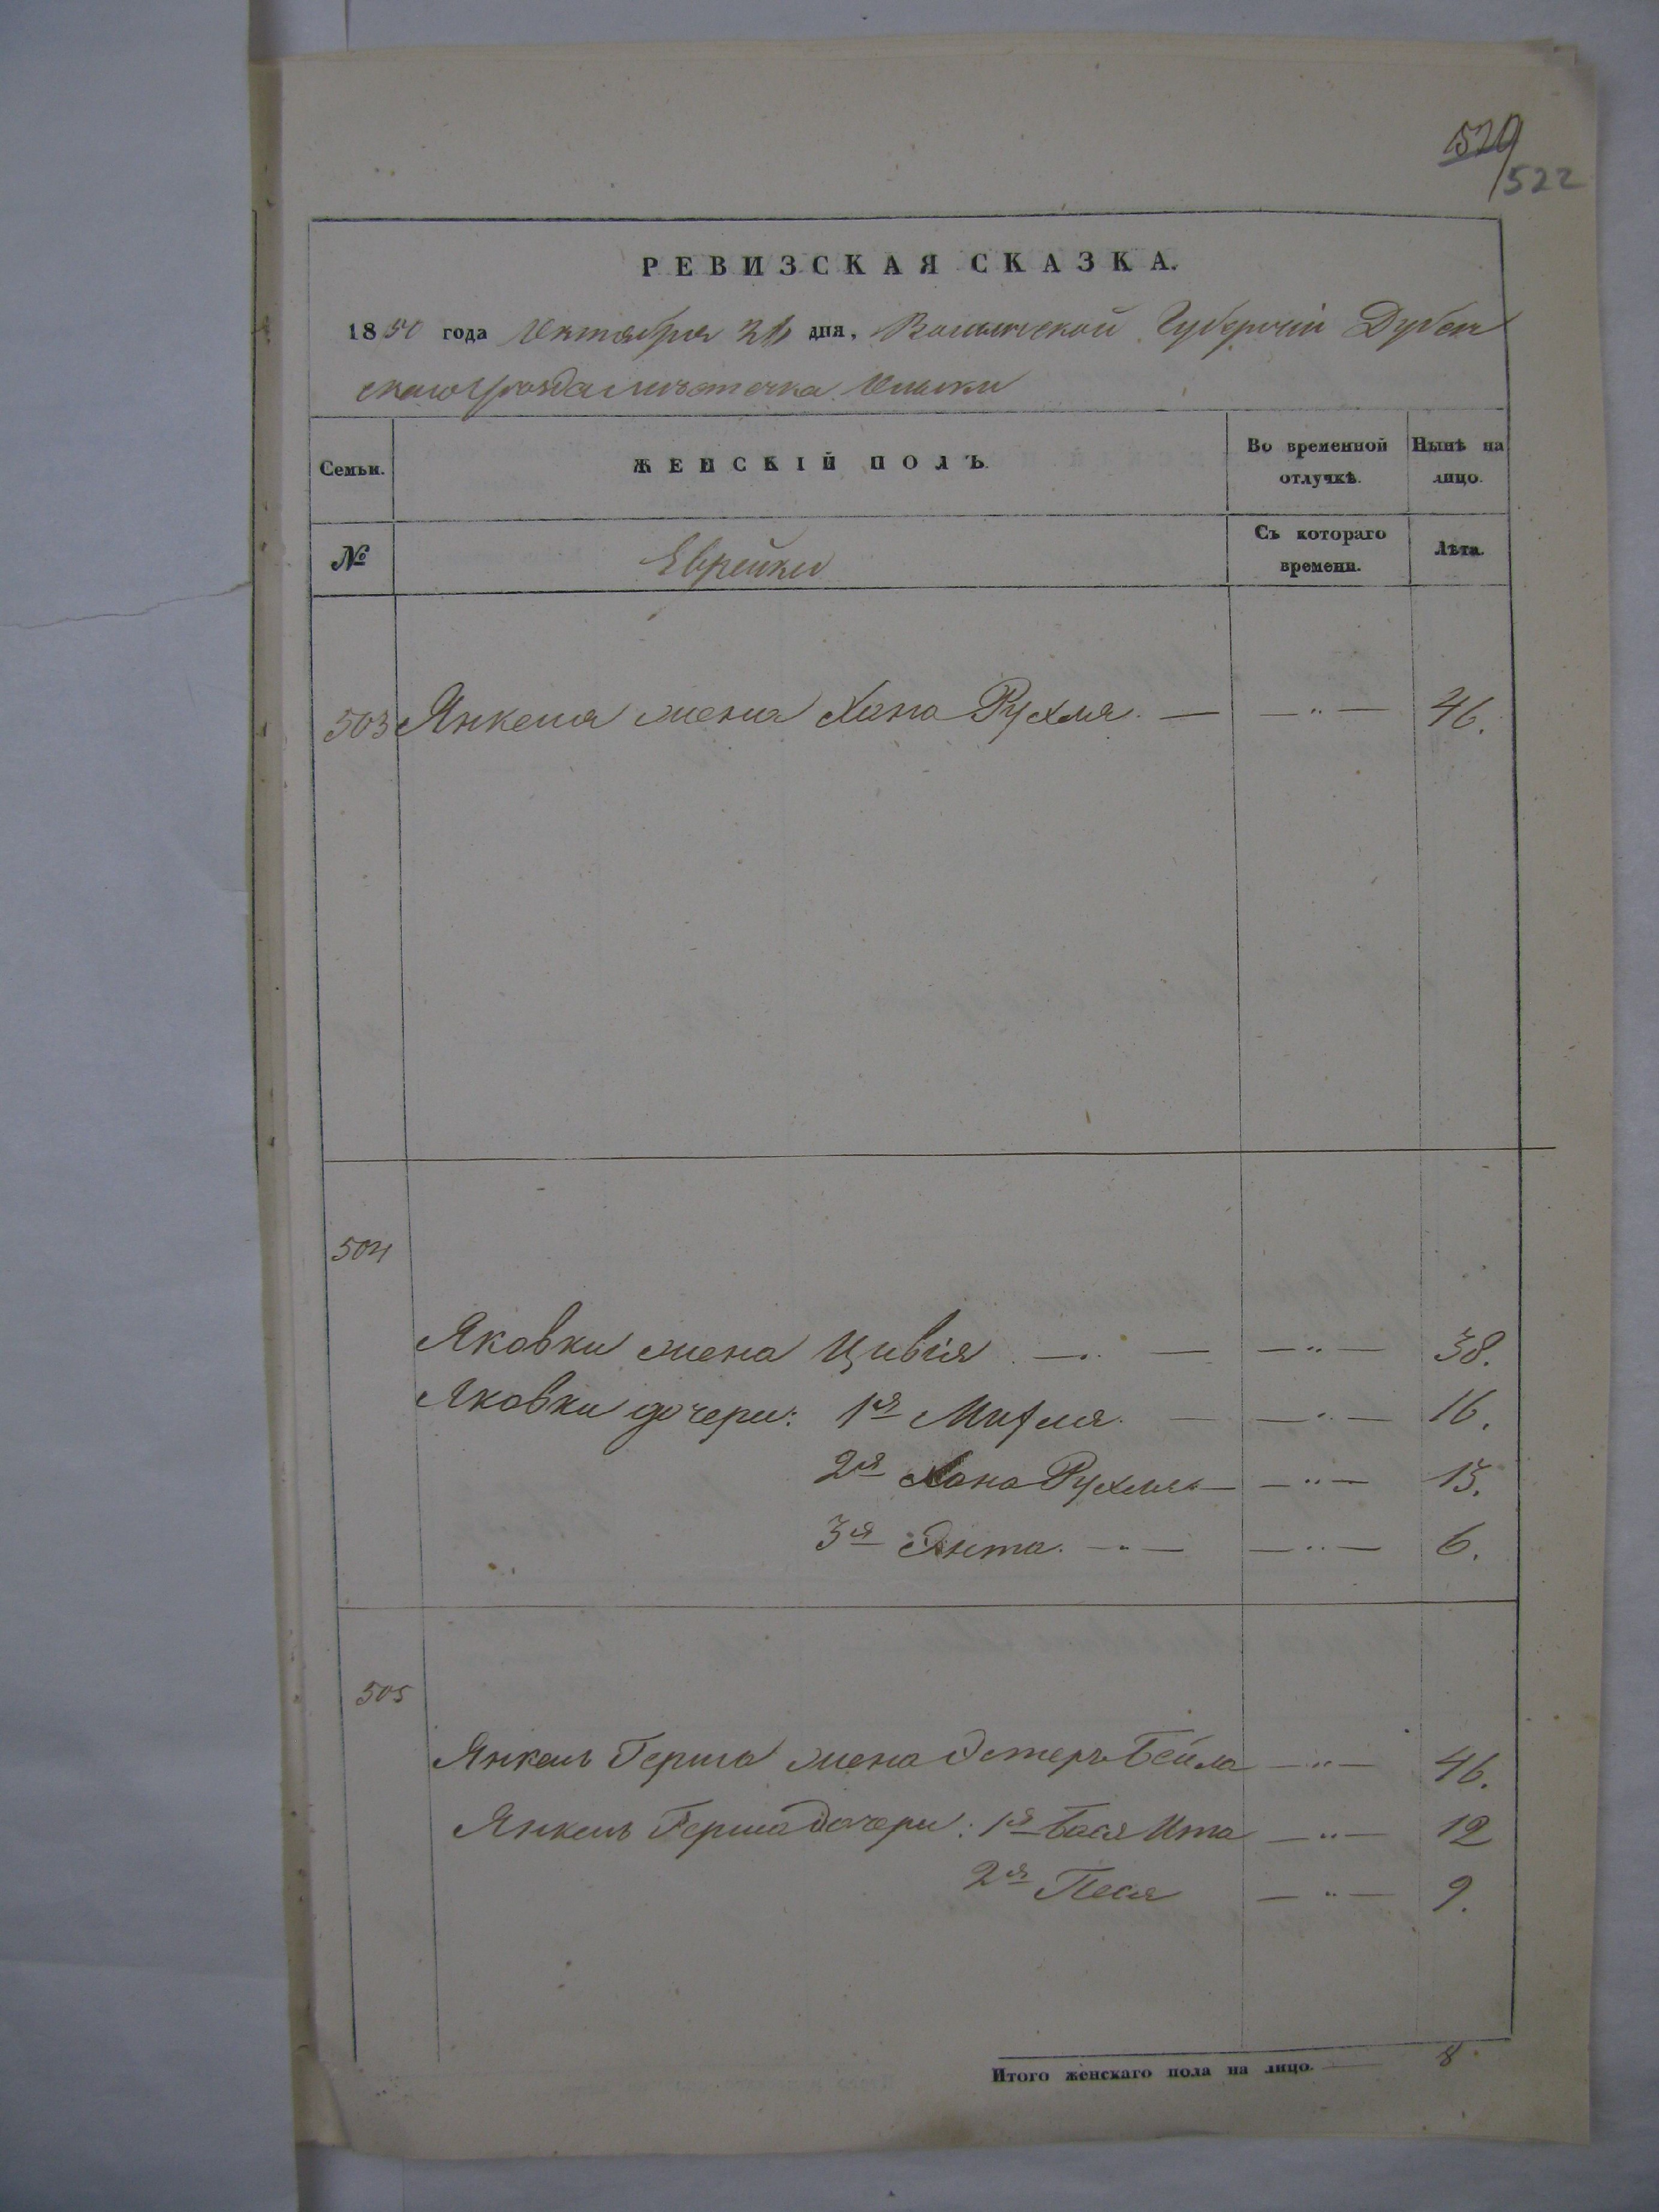 520
522
РЕВИЗСКАЯ СКАЗКА.
1850 года Октября 31 дня, Волынской Губерніи Дубен
скаго Уѣзда мѣстечка Олыки
Семьи. ЖЕНСКІЙ ПОЛЪ. Во временной отлучкѣ. Нынѣ на лицо.
№ Еврейки Съ котораго времени. Лѣта.
503 Янкеля жена Хана Рухля. — — „ — 46.
504
Яковки жена Цивія — . — — „ — 38.
Яковки дочери: 1я Митля. — — „ — 16.
2я Хана Рухля — — „ — 13.
3я Энта. — „ — — „ — 6.
505
Янкель Герша жена Эстеръ Бейла — „ — 46.
Янкель Герша дочери: 1я Бася Ита — „ — 12
2я Песя — „ — 9.
Итого женскаго пола на лицо. — 8.